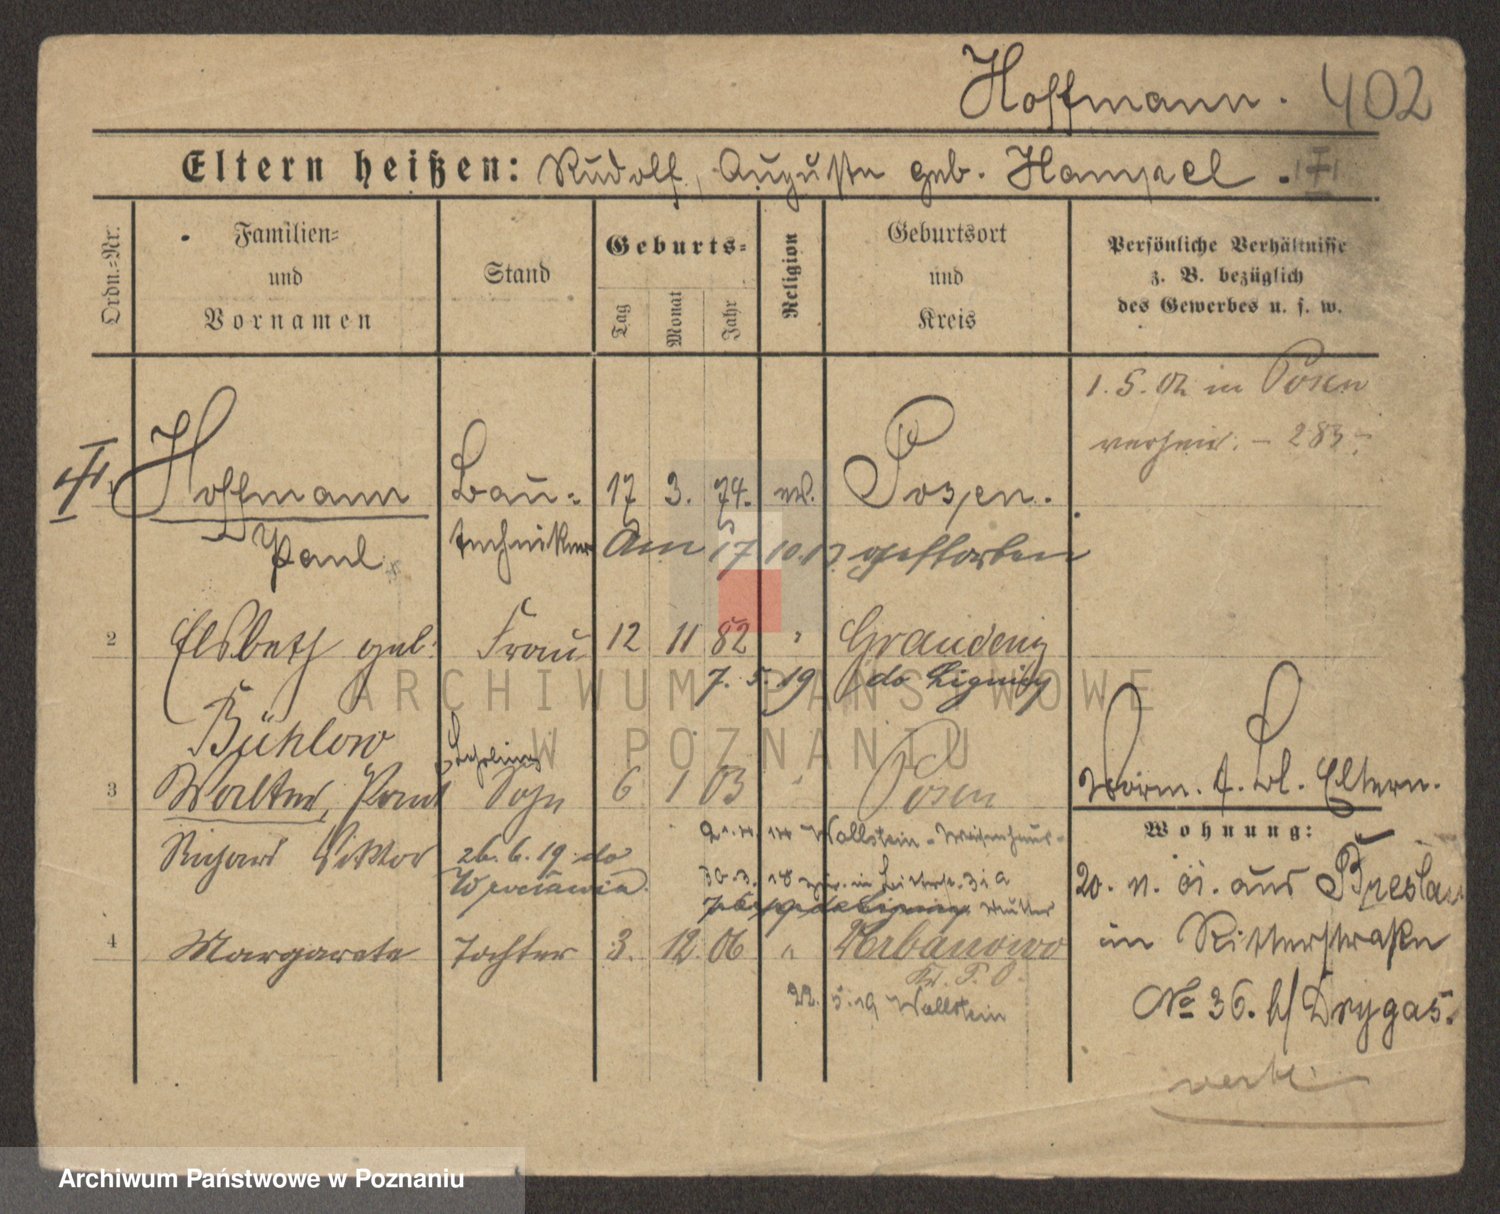 Hoffmann. 402
Eltern heißen: Rudolf, Auguste geb. Hampel.
Ordn.-Nr.
Familien-
und
Vornamen
Stand
Geburts-
Tag
Monat
Jahr
Religion
Geburtsort
und
Kreis
Persönliche Verhältnisse
z. B. bezüglich
des Gewerbes u. s. w.
1. 5. 02 in Posen
verheir. - 283 -
1 Hoffmann Bau- 17 3. 74. ev. Posen.
Paul techniker Am 17 10 17 gestorben
2 Elsbeth geb. Frau 12 11 82 " Graudenz
7. 5. 19 do Lignicy
Bühlow
Lehrling
3 Walter, Paul Sohn 6 1 03 " Posen
Richard Viktor
21. 4. 14 Wollstein - Waisenhaus -
26. 6. 19 do
30. 3. 18 in 31a
Mutter
4 Margarete Tochter 3. 12. 06 " Urbanowo
Kr. P. O.
22. 5. 19 Wollstein
Eltern.
Wohnung:
20. aus Breslau
in Ritterstraße
No 36. b/ Drygas.
ARCHIWUM PAŃSTWOWE
W POZNANIU
Archiwum Państwowe w Poznaniu